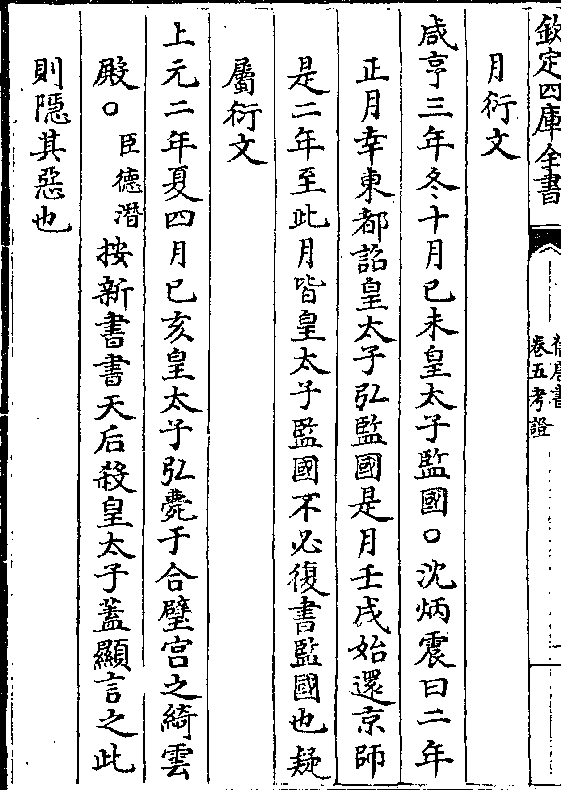 欽定四庫全書
舊唐書
卷五考證
月衍文
咸亨三年冬十月已未皇太子監國○沈炳震曰二年
正月幸東都詔皇太子弘監國是月壬戌始還京師
是二年至此月皆皇太子監國不必復書監國也疑
屬衍文
上元二年夏四月已亥皇太子弘薨于合璧宮之綺雲
殿○臣德潛按新書書天后殺皇太子蓋顯言之此
則隱其惡也